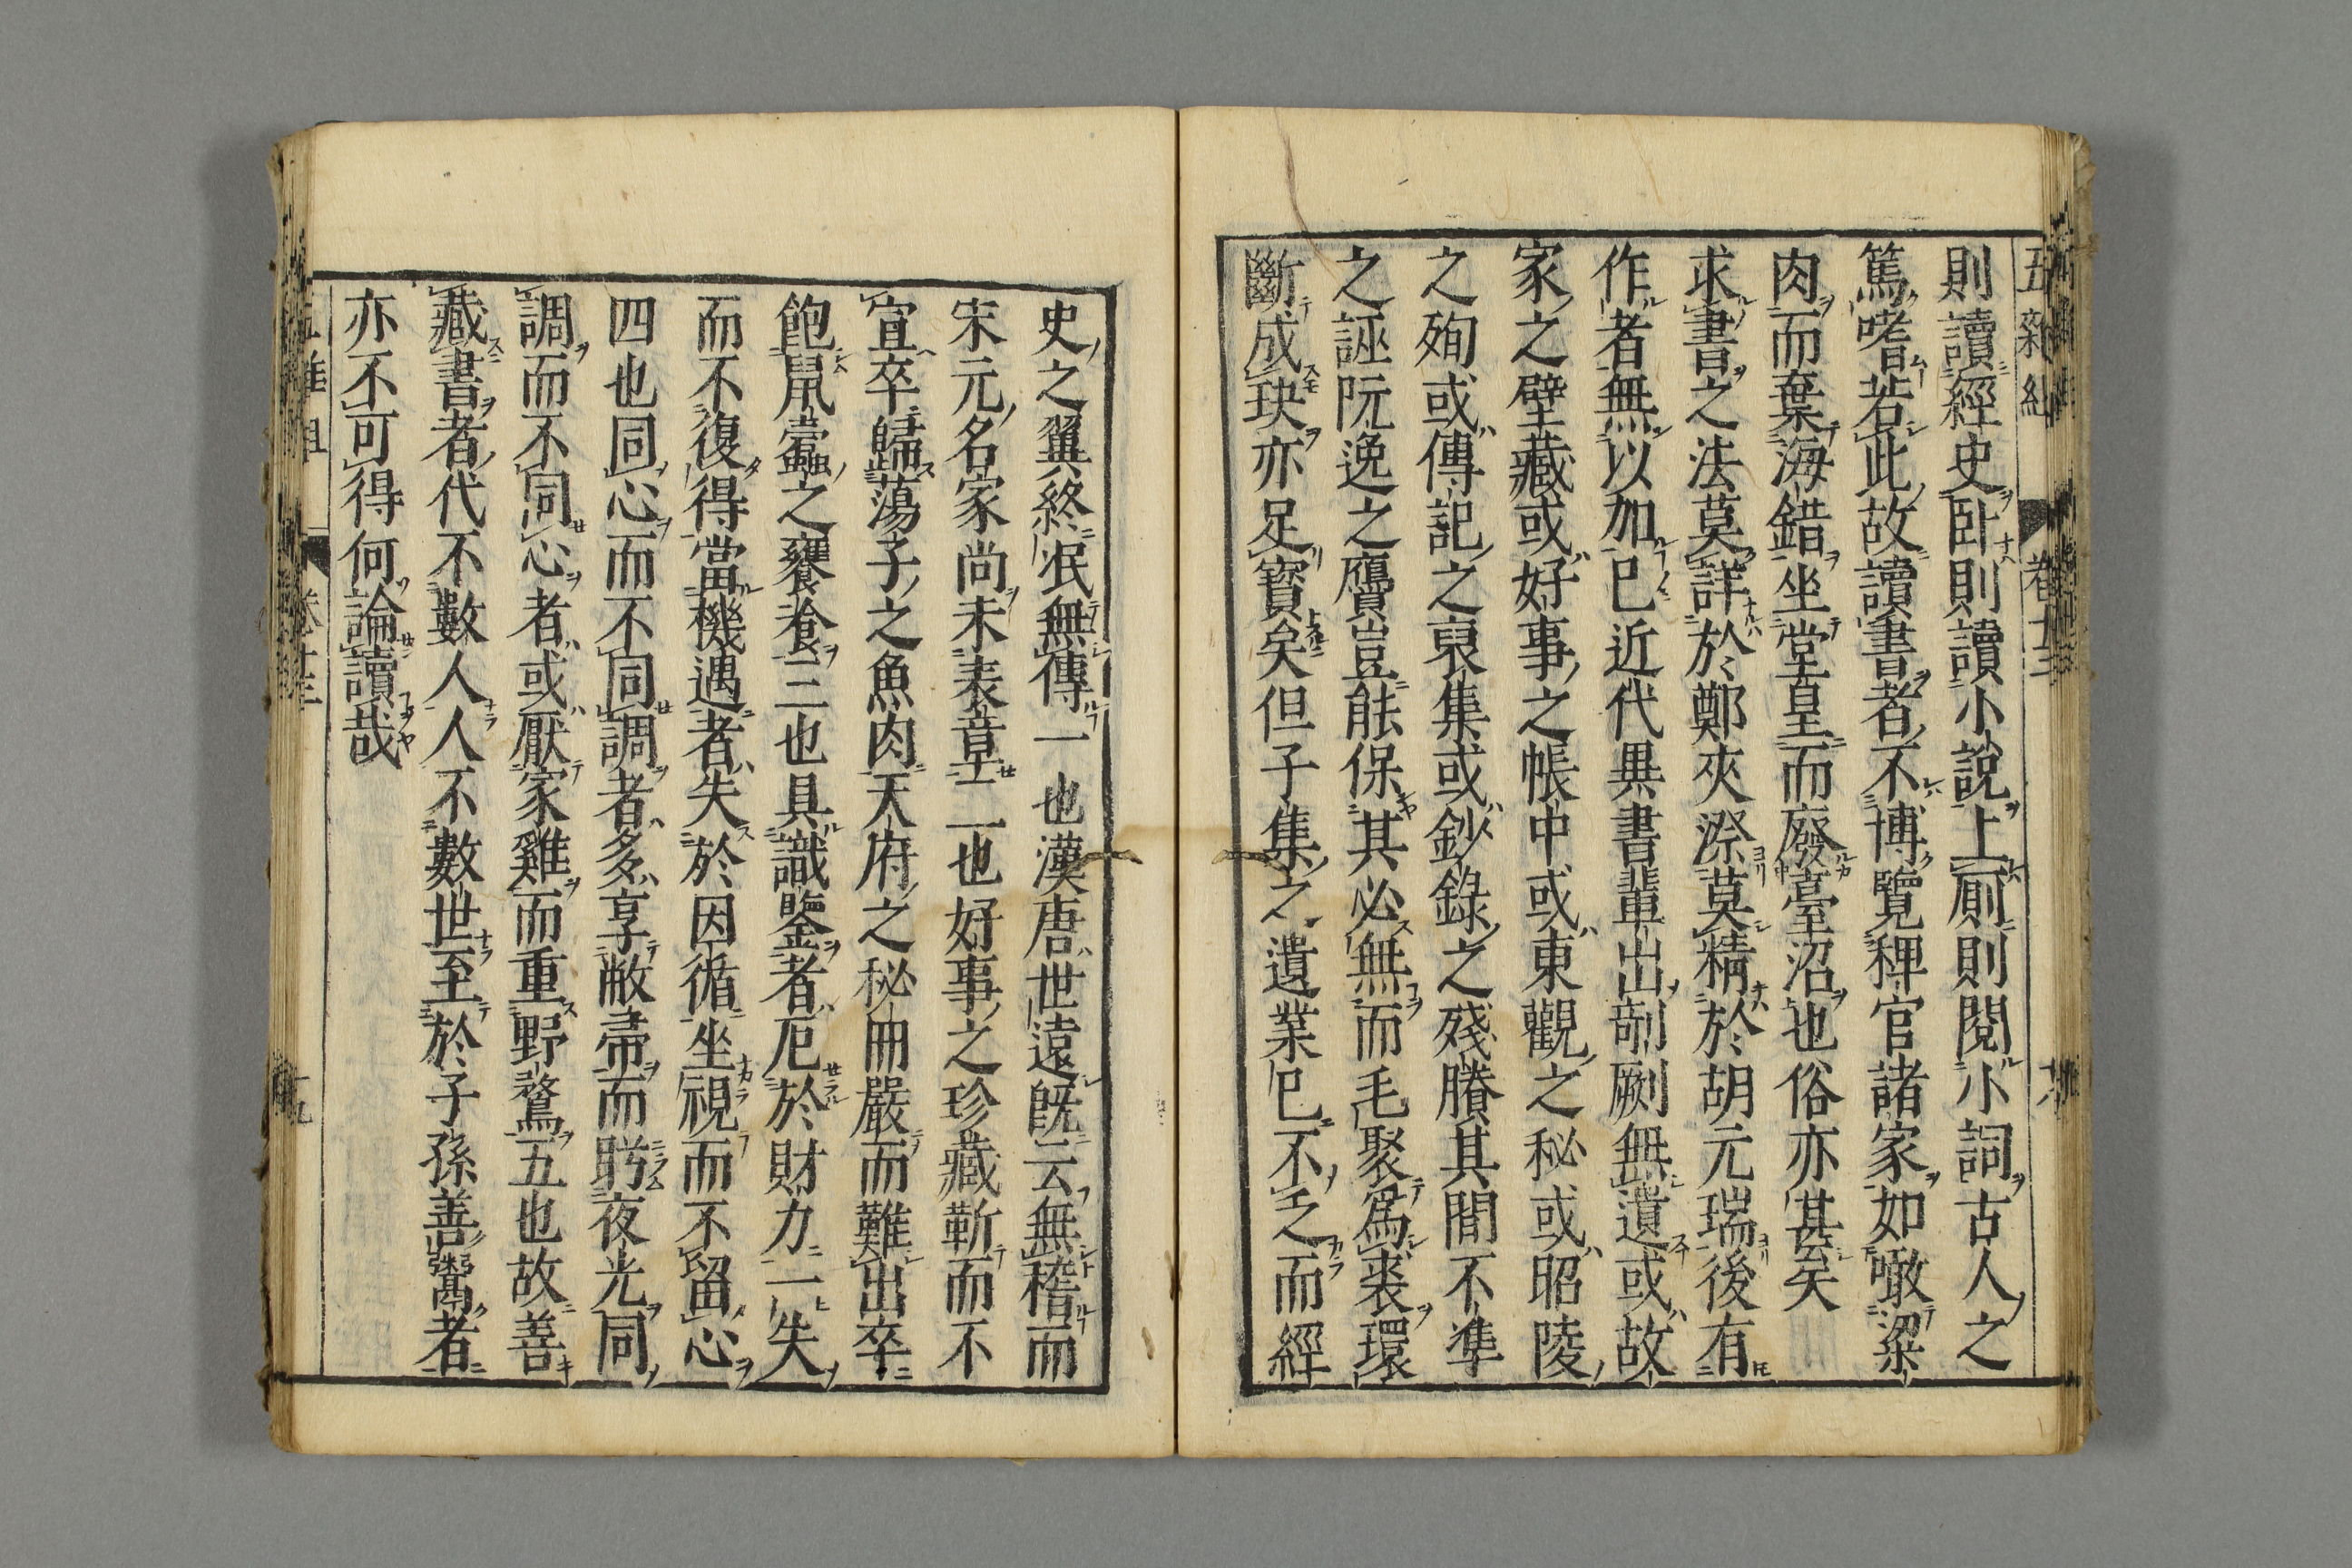 五雜組 卷十三
則讀經史臥則讀小說上廁則閱小詞古人之
篤嗜若此故讀書者不博覽稗官諸家如噉粱
肉而棄海錯坐堂皇而廢臺沼也俗亦甚矣
求書之法莫詳於鄭夾漈莫精於胡元瑞後有
作者無以加已近代異書輩出剞劂無遺或故
家之壁藏或好事之帳中或東觀之秘或昭陵
之殉或傳記之裒集或鈔錄之殘賸其間不準
之誣阮逸之贗豈能保其必無而毛聚爲裘環
斷成玦亦足寶矣但子集之遺業已不乏而經
史之翼終泯無傳一也漢唐世遠旣云無稽而
宋元名家尚未表章二也好事之珍藏靳而不
宣卒歸蕩子之魚肉天府之秘冊嚴而難出卒
飽鼠蠹之饔飧三也具識鑒者厄於財力一失
而不復得當機遇者失於因循坐視而不留心
四也同心而不同調者多享敝帚而盻夜光同
調而不同心者或厭家雞而重野鶩五也故善
藏書者代不數人人不數世至於子孫善鬻者
亦不可得何論讀哉